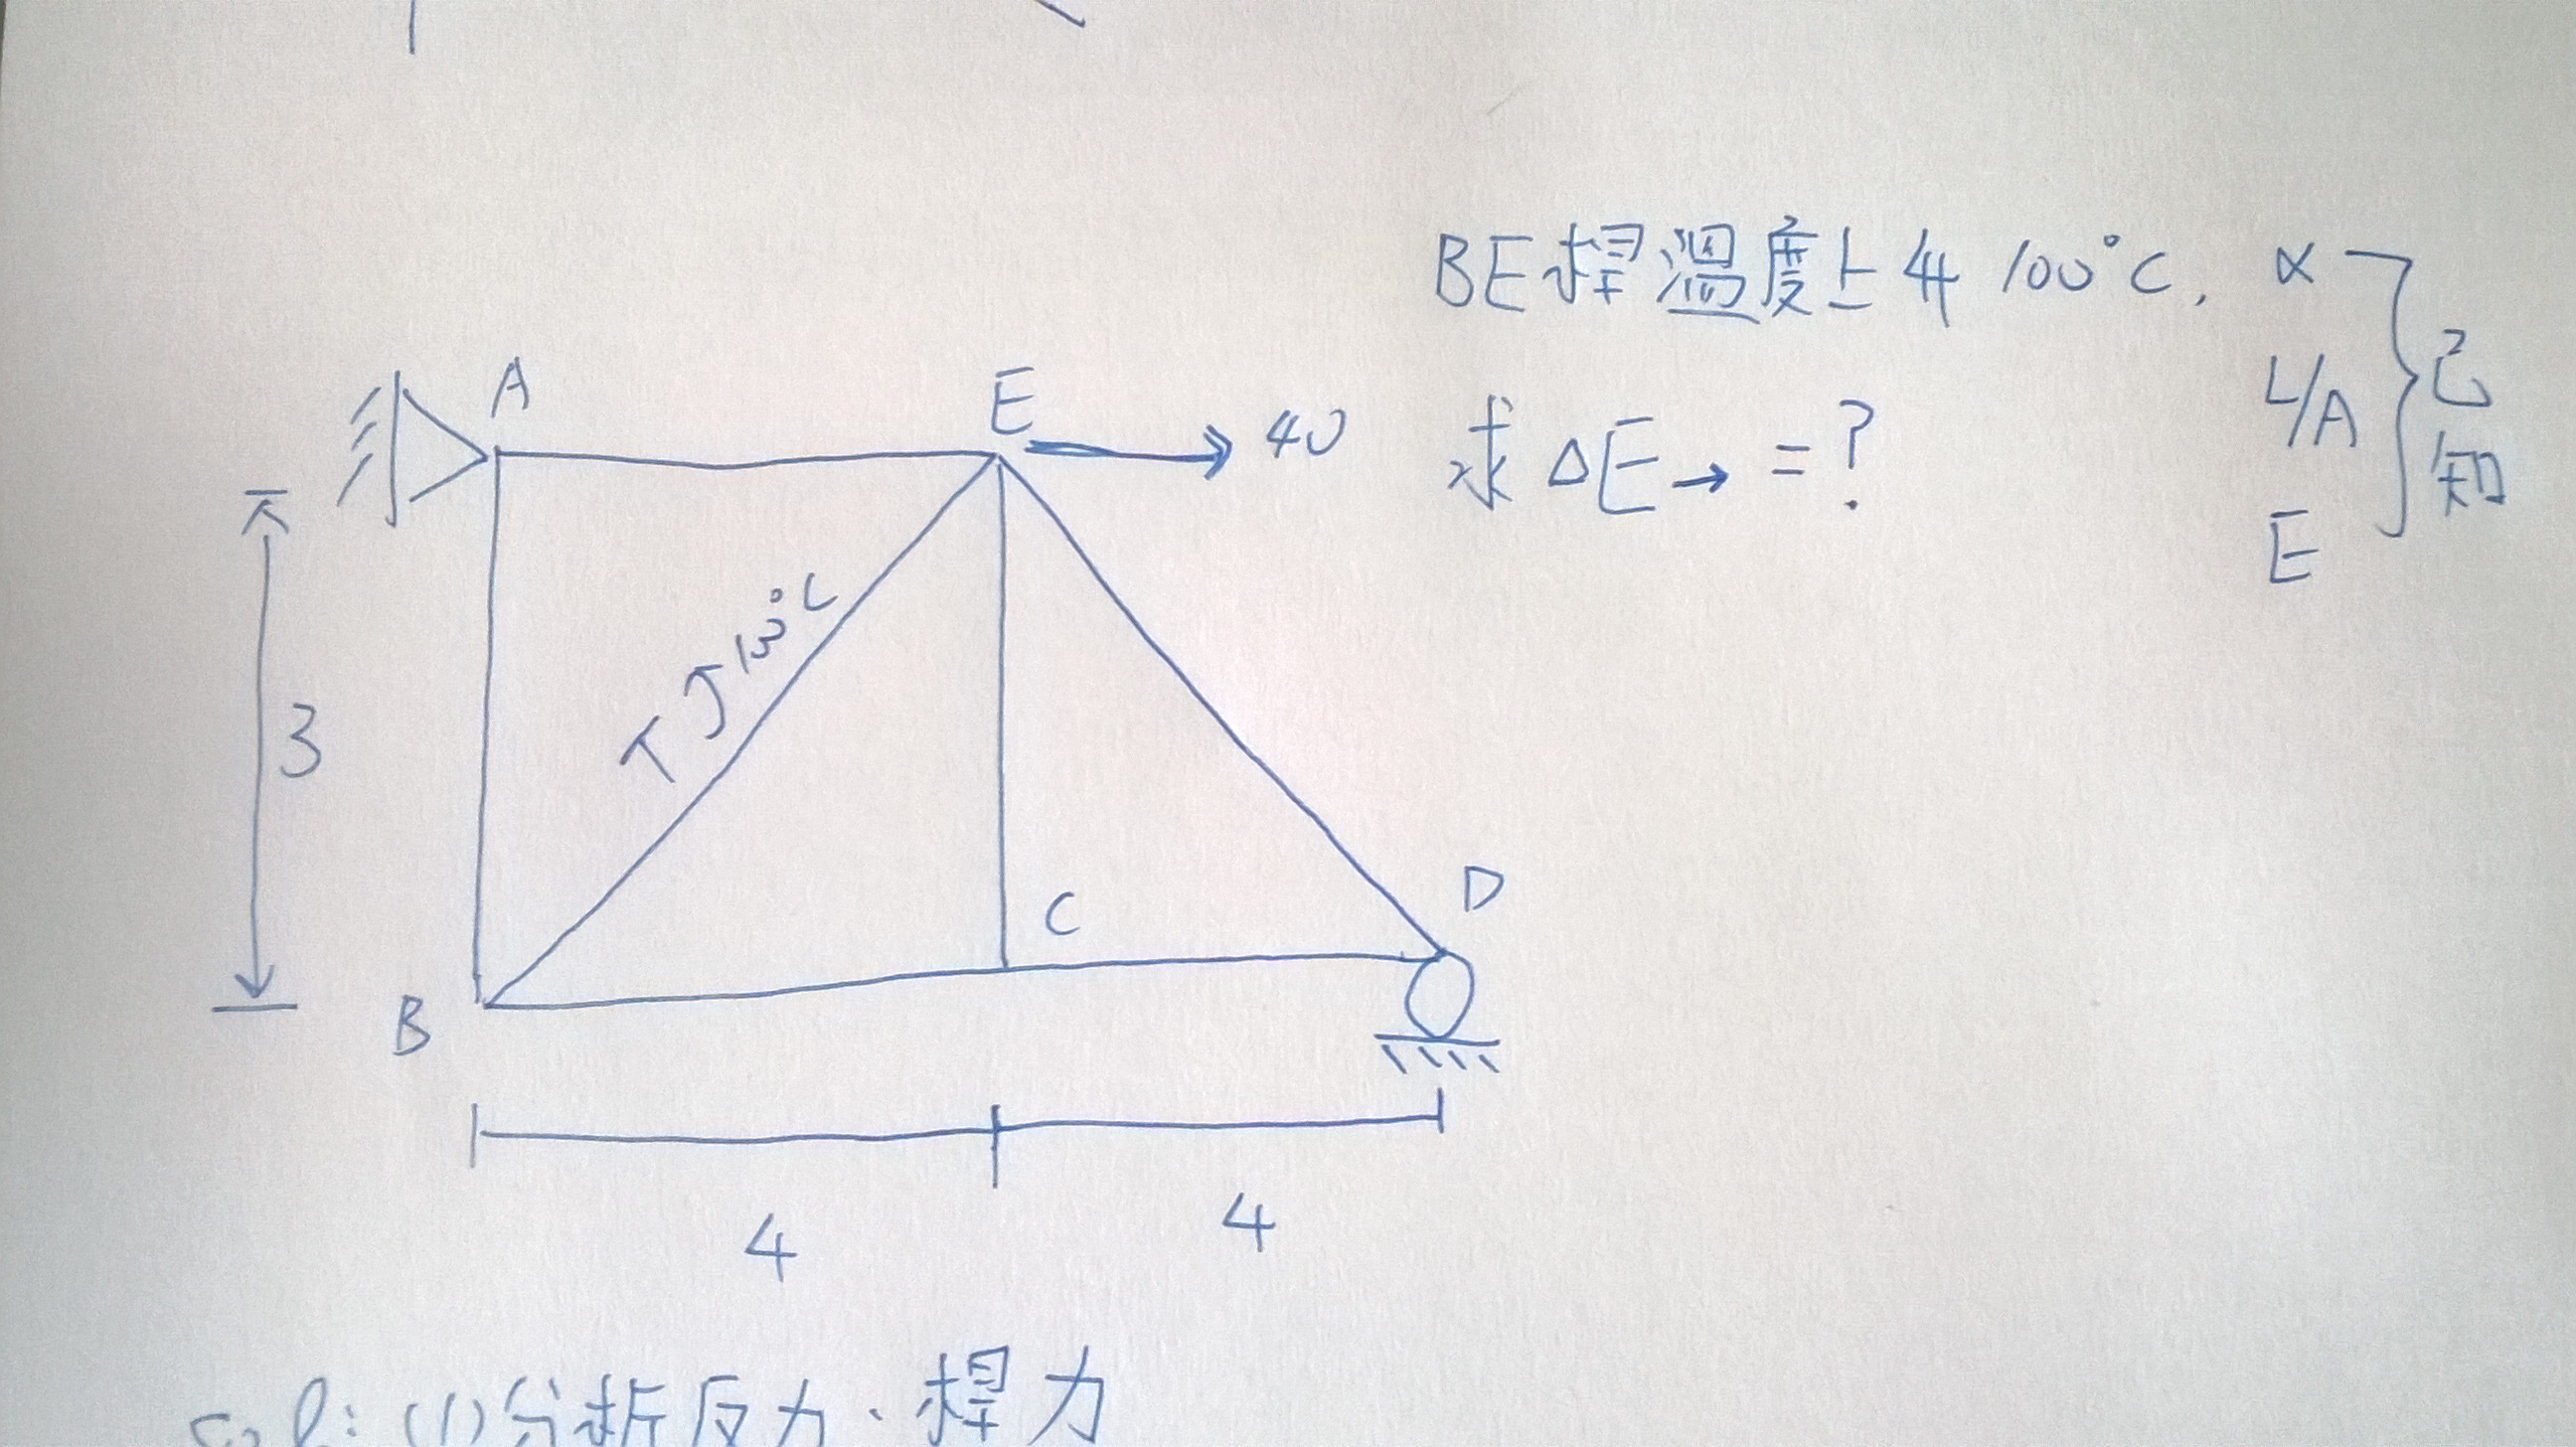 BE桿溫度上升 100°C, α
L/A
E
已知
求 ΔE→ = ?
A
E
40
T 100°C
3
C
D
B
4
4
Sol: (1) 分析反力、桿力